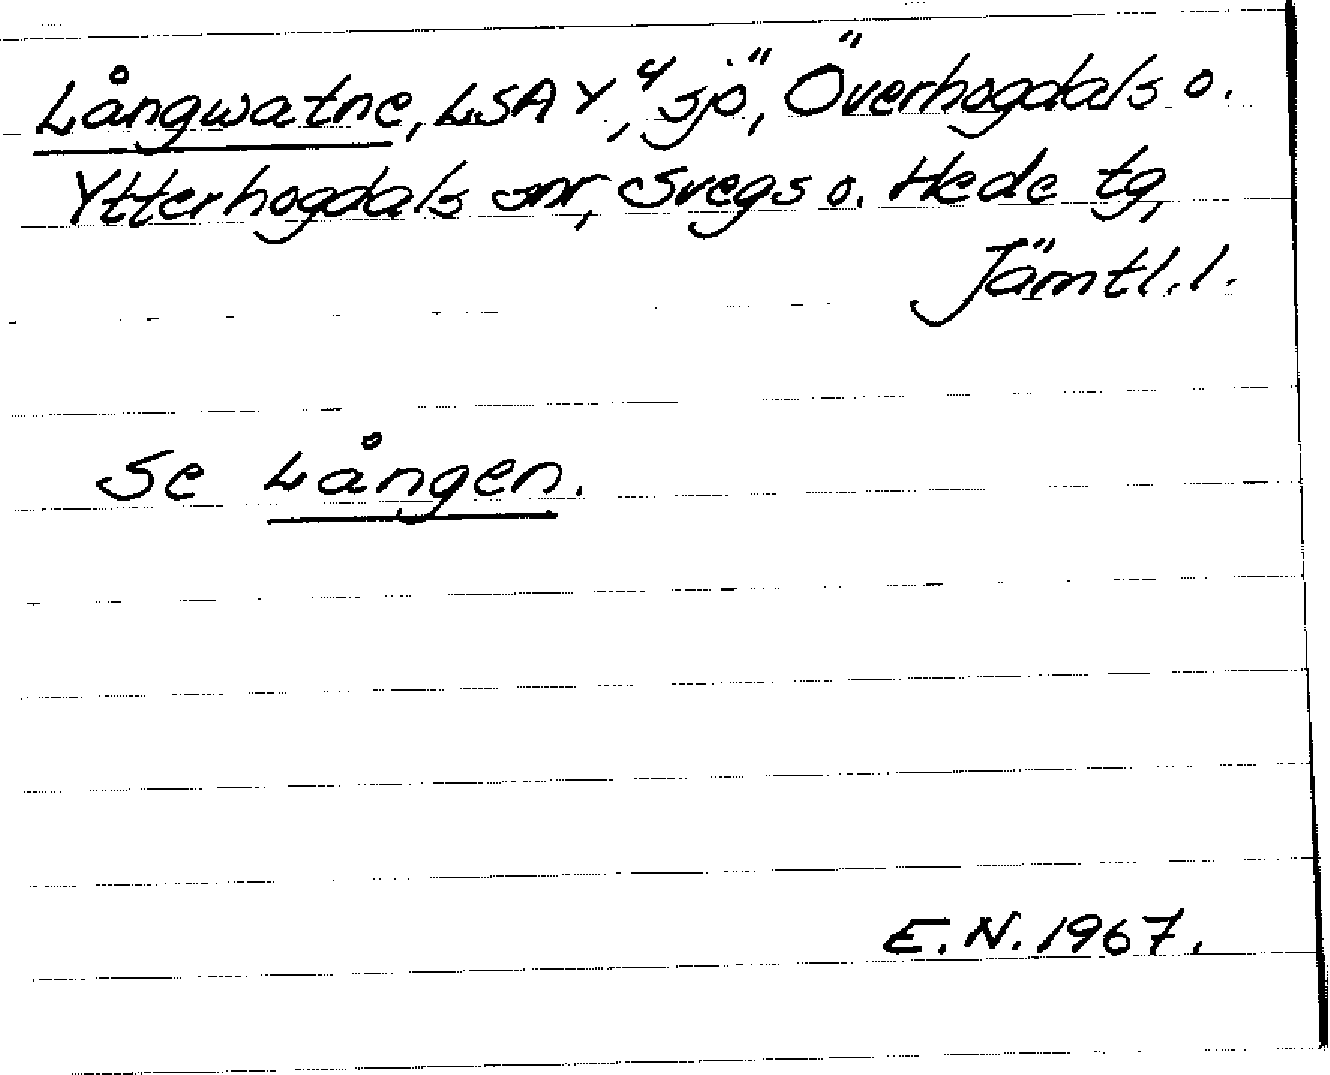 Långwatne, LSA Y, "sjö", Överhogdals o.
Ytterhogdals snr, Svegs o. Hede tg,
Jämtl.l.
Se Lången.
E.N. 1967.